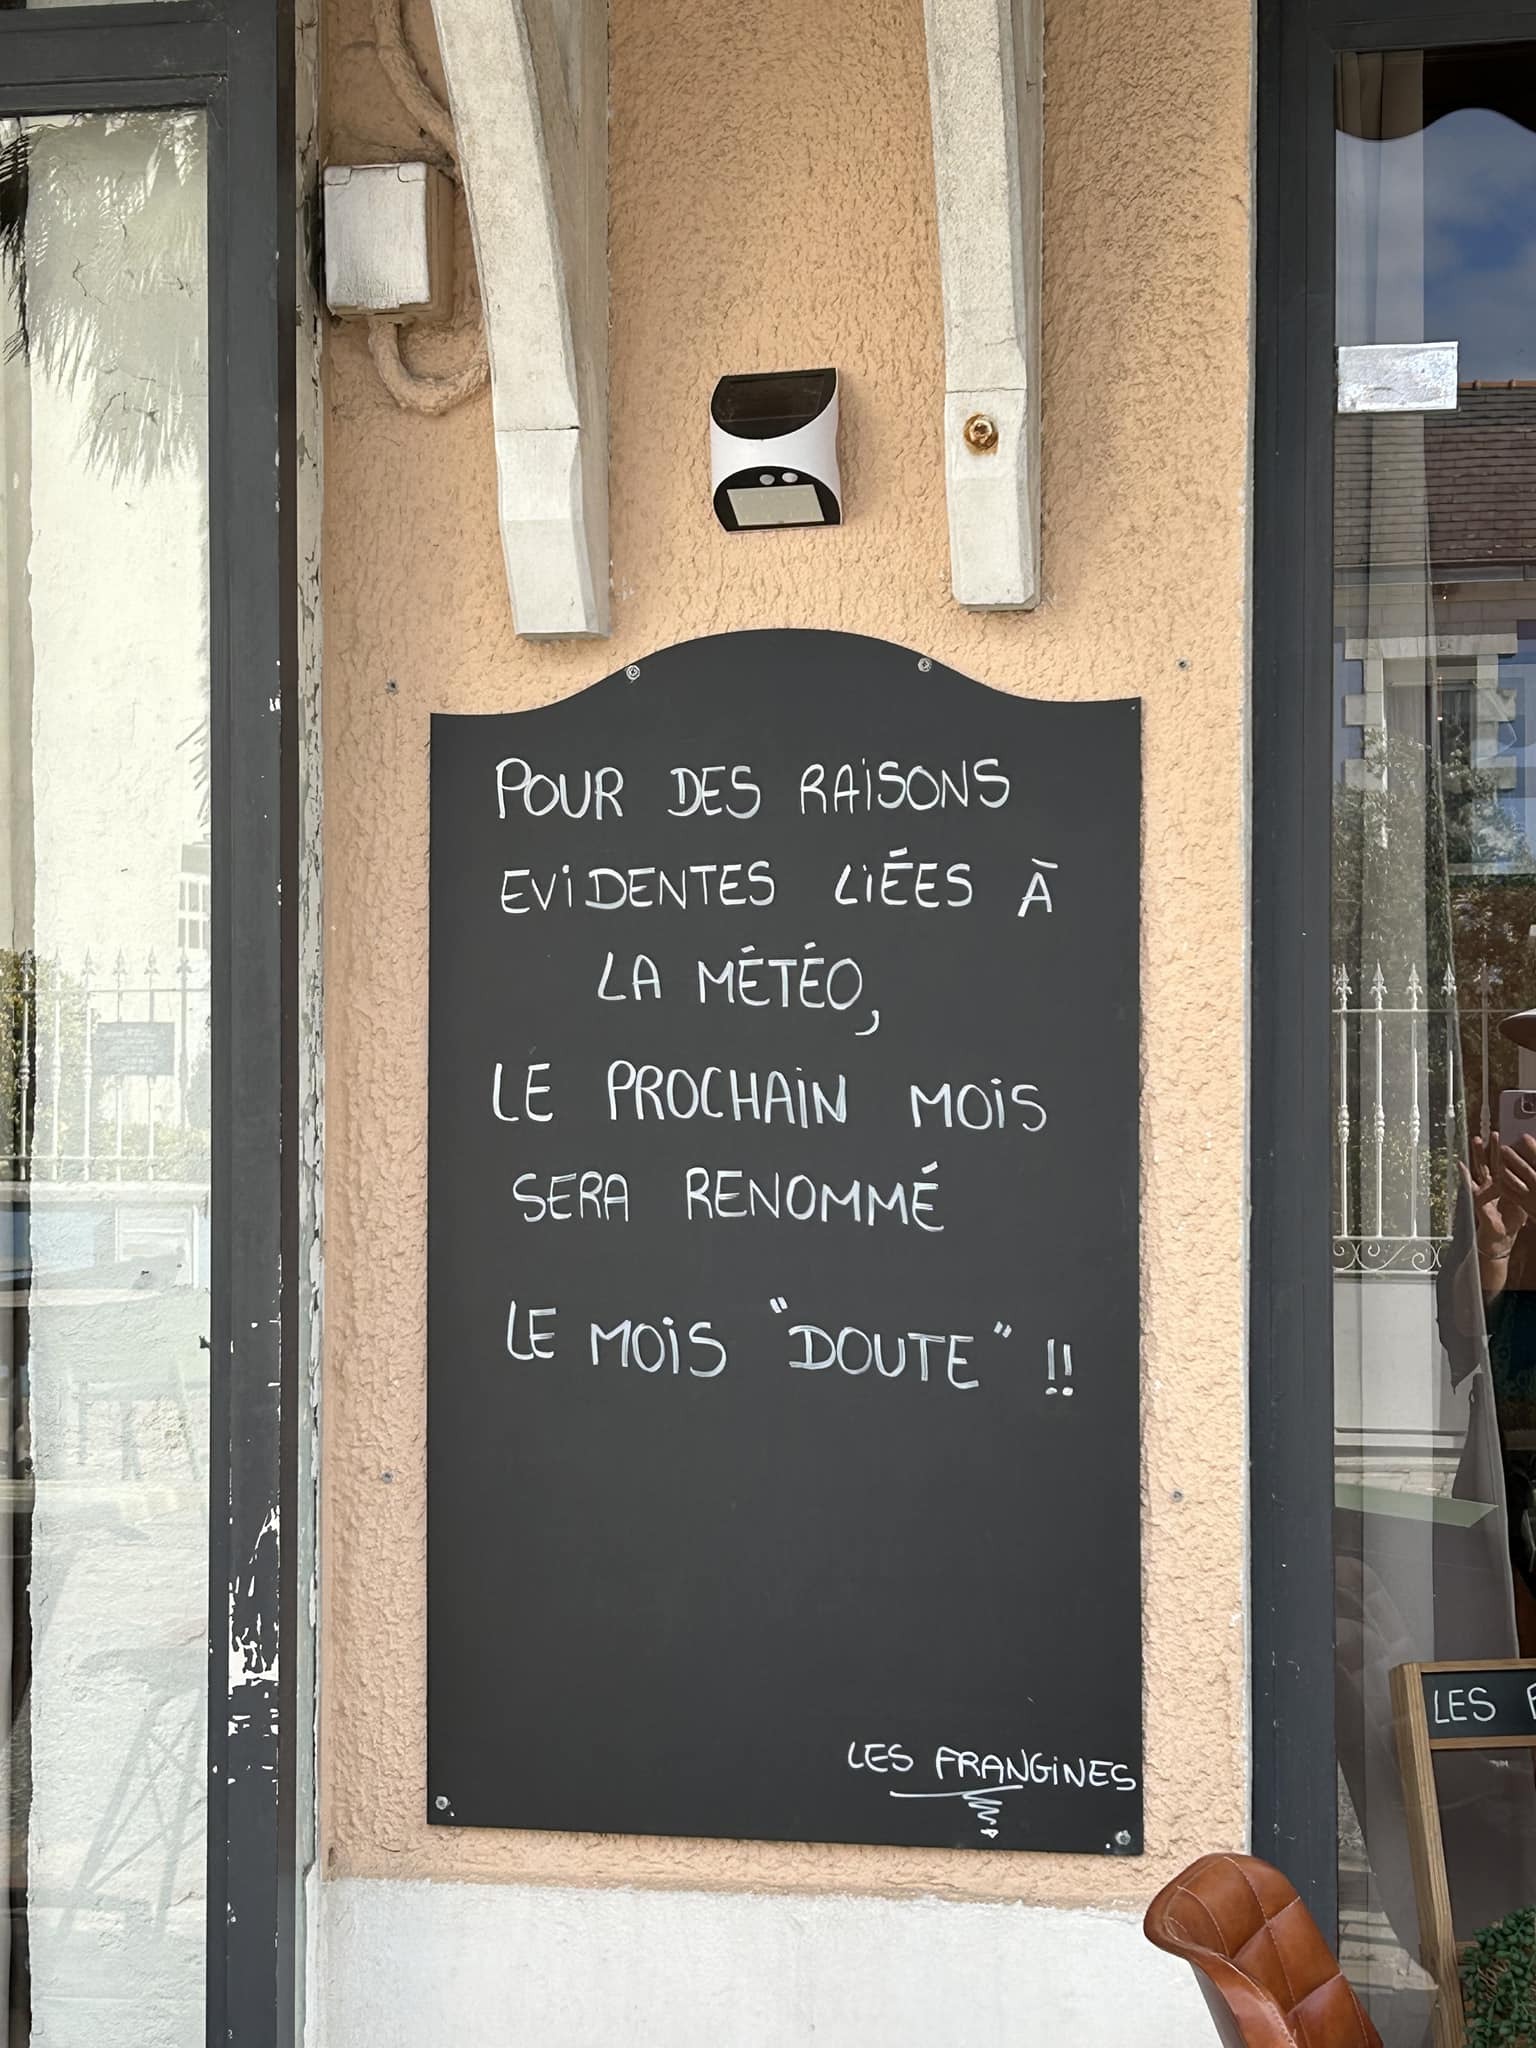 POUR DES RAISONS
EVIDENTES LIÉES À
LA MÉTÉO,
LE PROCHAIN MOIS
SERA RENOMMÉ
LE MOIS "DOUTE" !!
LES FRANGINES
LES